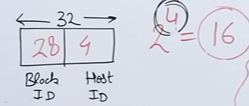 32
28 4
Block Host
ID ID
2⁴ = 16